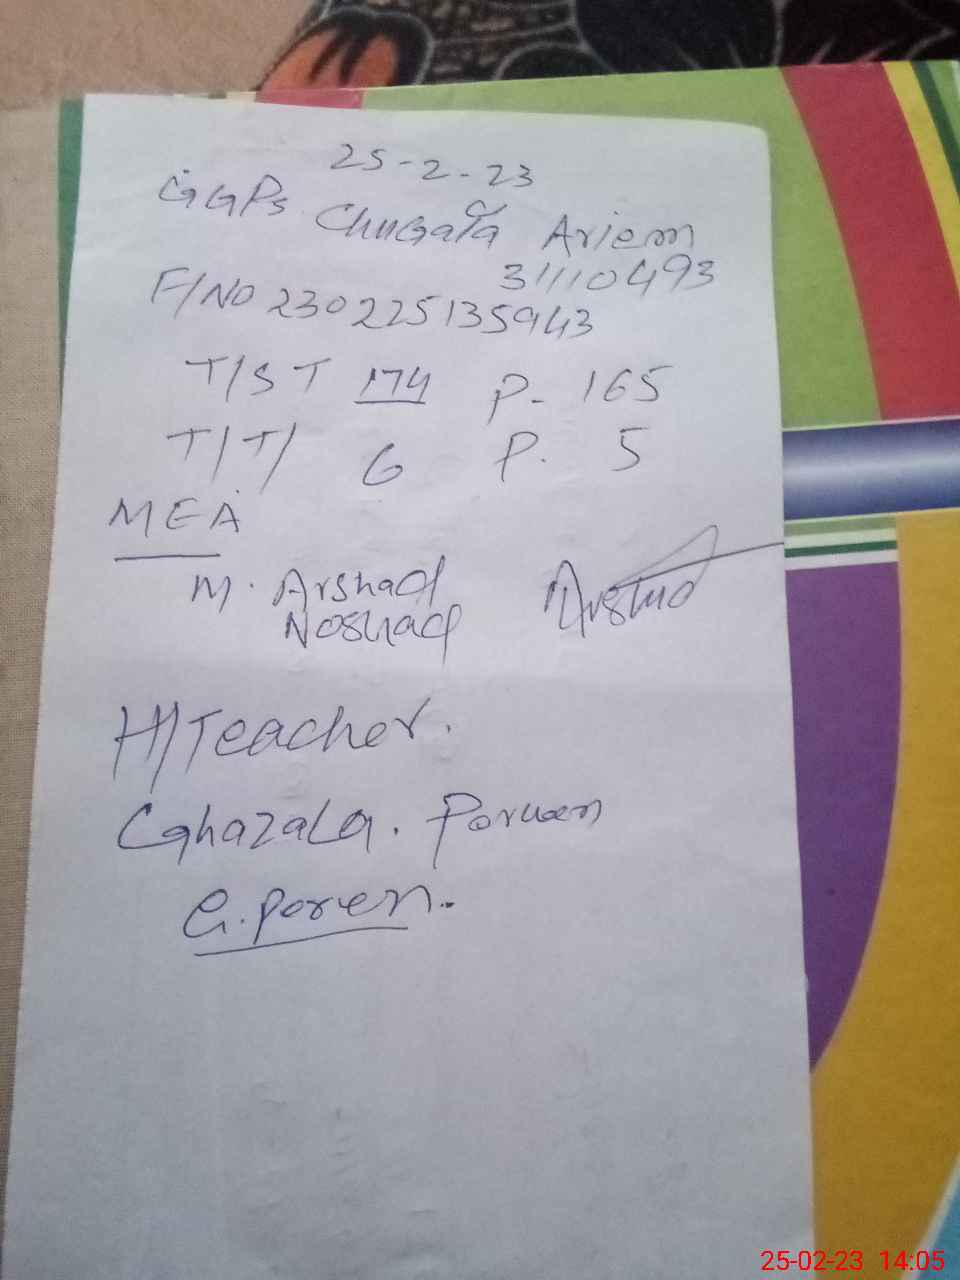 25-2-23
GGPS Chugata Ariem
31110493
F/NO 230225135943
T/ST 174 P- 165
T/T/ 6 P. 5
MEA
M. Arshad
Noshad Arshad
H/Teacher.
Ghazala. Porveen
G.Porven.
25-02-23 14:05